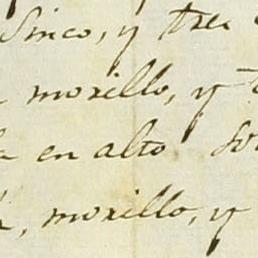 Sinco, y tres
morillo, y
en alto
, morillo, y